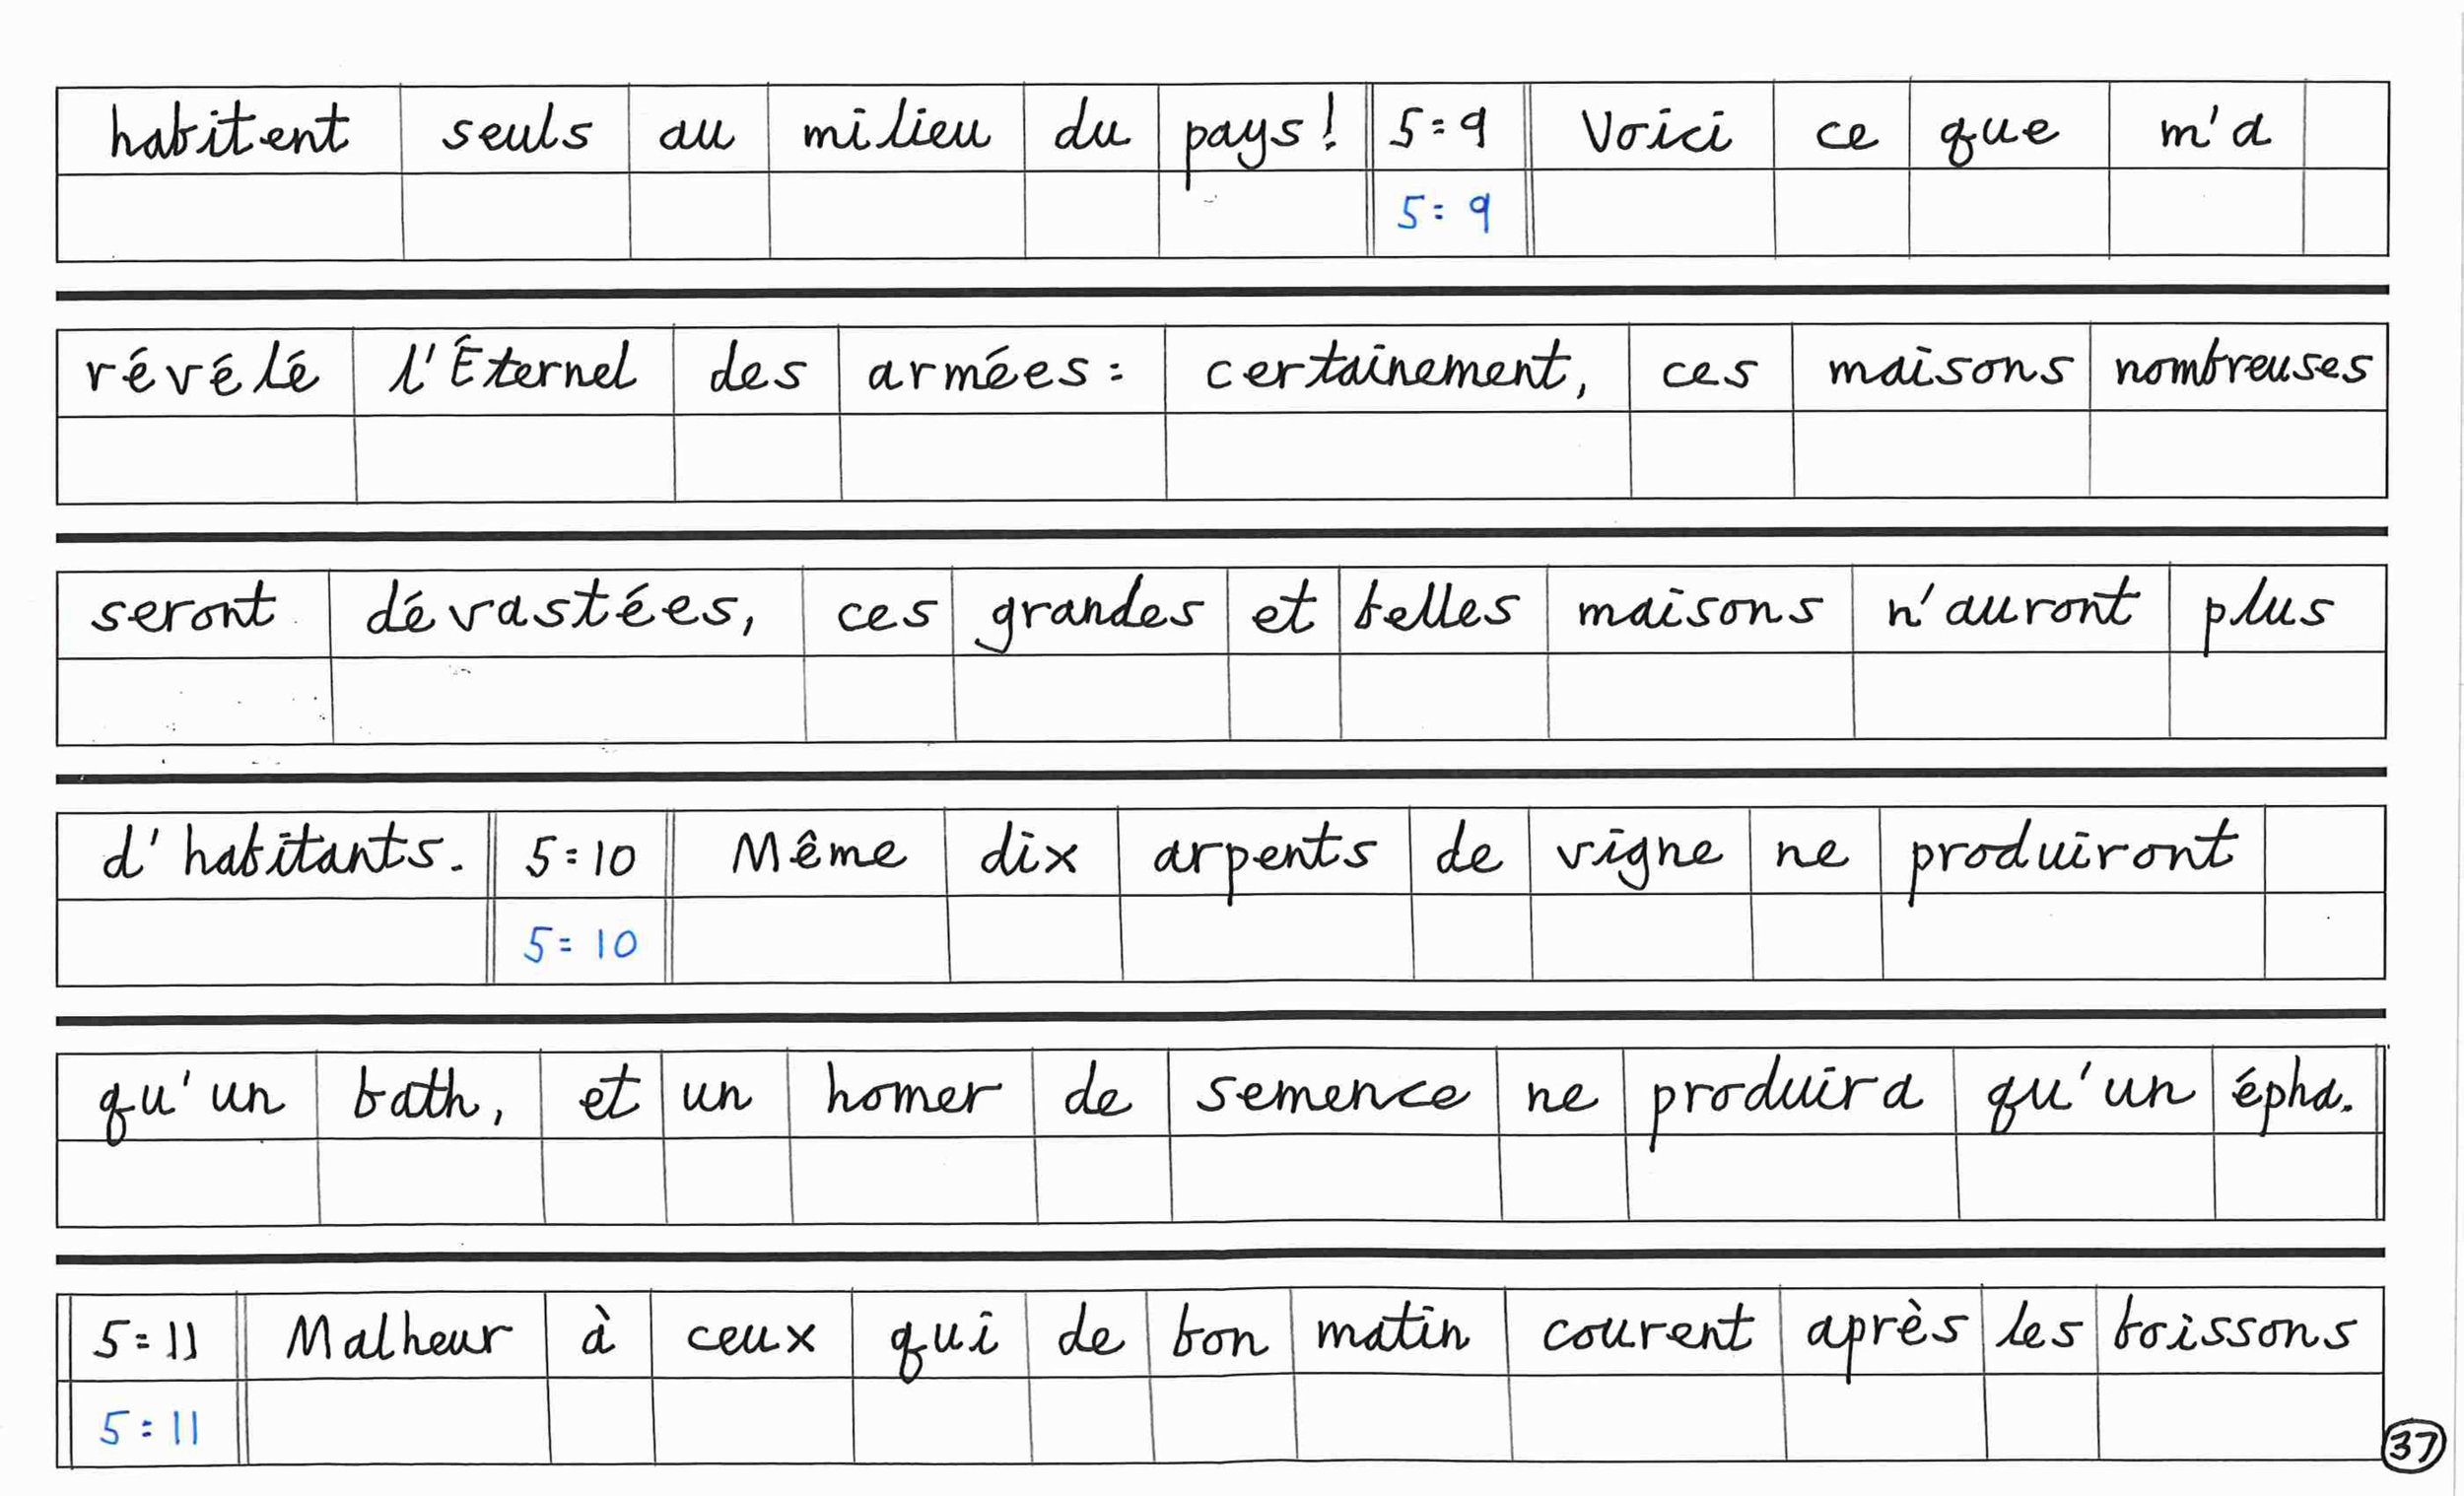 habitent seuls au milieu du pays! 5:9 Voici ce que m'a
5:9
révélé l'Éternel des armées: certainement, ces maisons nombreuses
seront dévastées, ces grandes et belles maisons n'auront plus
d'habitants. 5:10 Même dix arpents de vigne ne produiront
5:10
qu'un bath, et un homer de semence ne produira qu'un épha.
5:11 Malheur à ceux qui de bon matin courent après les boissons
5:11
37